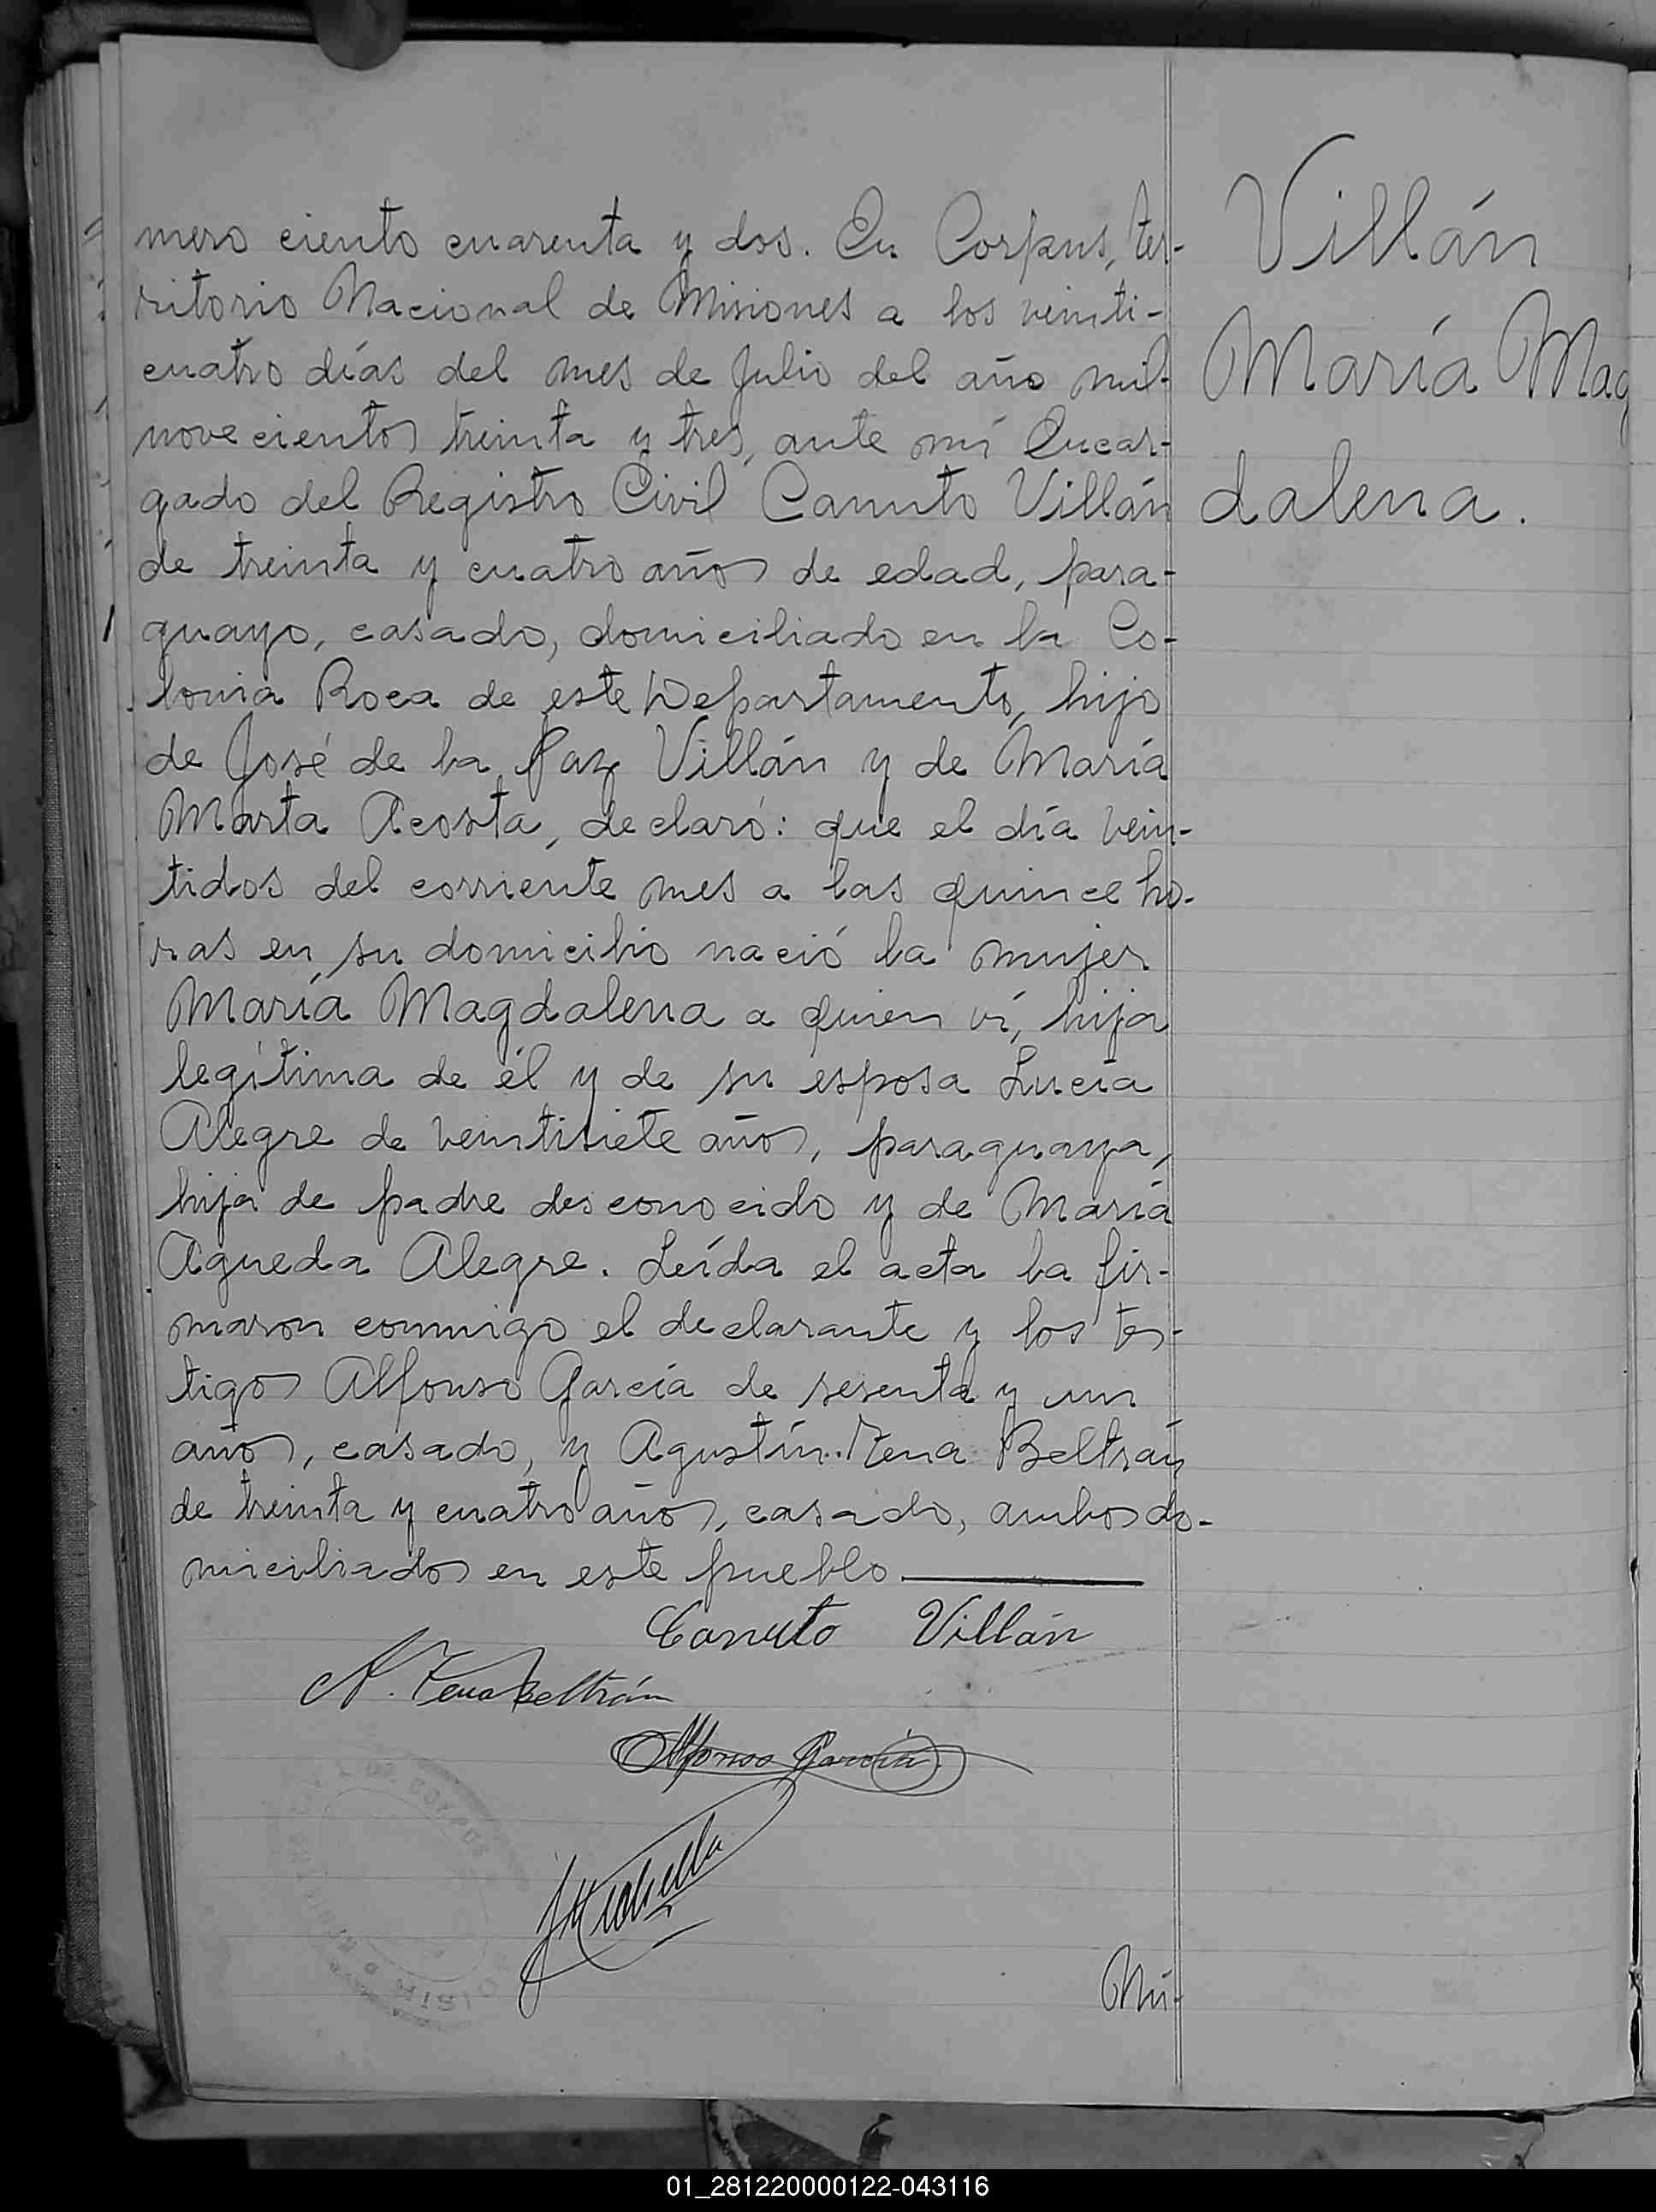 mero ciento cuarenta y dos. En Corpus, ter-
ritorio Nacional de Misiones a los veinti-
cuatro días del mes de Julio del año mil-
novecientos treinta y tres, ante mí Encar-
gado del Registro Civil Canuto Villán
de treinta y cuatro años de edad, para-
guayo, casado, domiciliado en la Co-
lonia Roca de este Departamento, hijo
de José de la Paz Villán y de María
Marta Acosta, declaró: que el día vein-
tidos del corriente mes a las quince ho-
ras en su domicilio nació la mujer
María Magdalena a quien ví, hija
legítima de él y de su esposa Lucía
Alegre de veintisiete años, paraguaya,
hija de padre desconocido y de María
Agueda Alegre. Leída el acta la fir-
maron conmigo el declarante y los tes-
tigos Alfonso García de sesenta y un
años, casado, y Agustín Zena Beltrán
de treinta y cuatro años, casado, ambos do-
miciliados en este pueblo.
Canuto Villán
A. Zena Beltrán
Alfonso García
Nú-
Villán
María Mag
dalena.
01_281220000122-043116